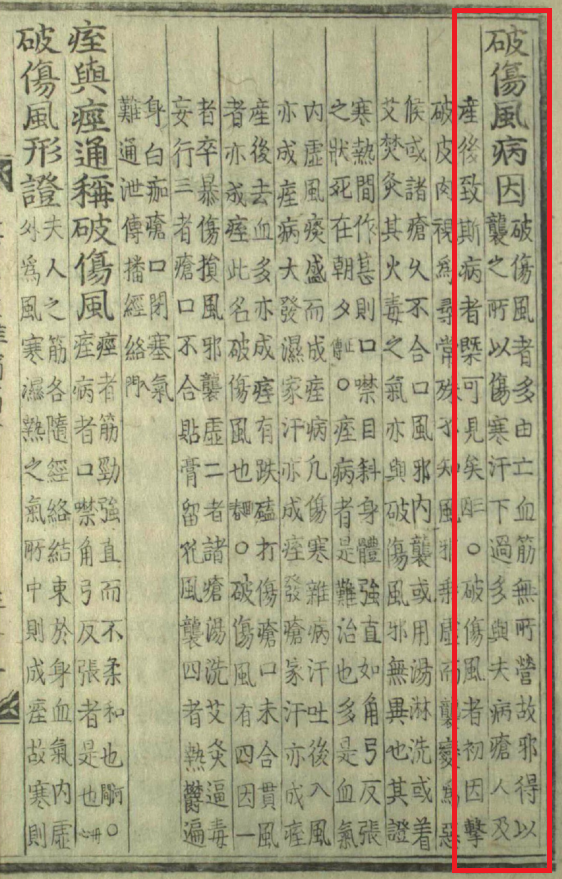 破傷風病因
破傷風者多由亡血筋無所營故邪得以
襲之所以傷寒汗下過多與夫病瘡人及
産後致斯病者槩可見矣三因○破傷風者初因擊
破皮肉視爲尋常殊不知風邪乘虛而襲變爲惡
候或諸瘡久不合口風邪內襲或用湯淋洗或着
艾焚灸其火毒之氣亦與破傷風邪無異也其證
寒熱間作甚則口噤目斜身體強直如角弓反張
之狀死在朝夕正傳○痓病者是難治也多是血氣
內虛風痰盛而成痓病凡傷寒雜病汗吐後入風
亦成痓病大發濕家汗亦成痓發瘡家汗亦成痓
産後去血多亦成痓有跌磕打傷瘡口未合貫風
者亦成痓此名破傷風也回春○破傷風有四因一
者卒暴傷損風邪襲虛二者諸瘡湯洗艾灸逼毒
妄行三者瘡口不合貼膏留孔風襲四者熱欝遍
身白痂瘡口閉塞氣
難通泄傳播經絡入門
痓與痙通稱破傷風
痙者筋勁強直而不柔和也河間○
痓病者口噤角弓反張者是也丹心
破傷風形證
夫人之筋各隨經絡結束於身血氣內虛
外爲風寒濕熱之氣所中則成痓故寒則